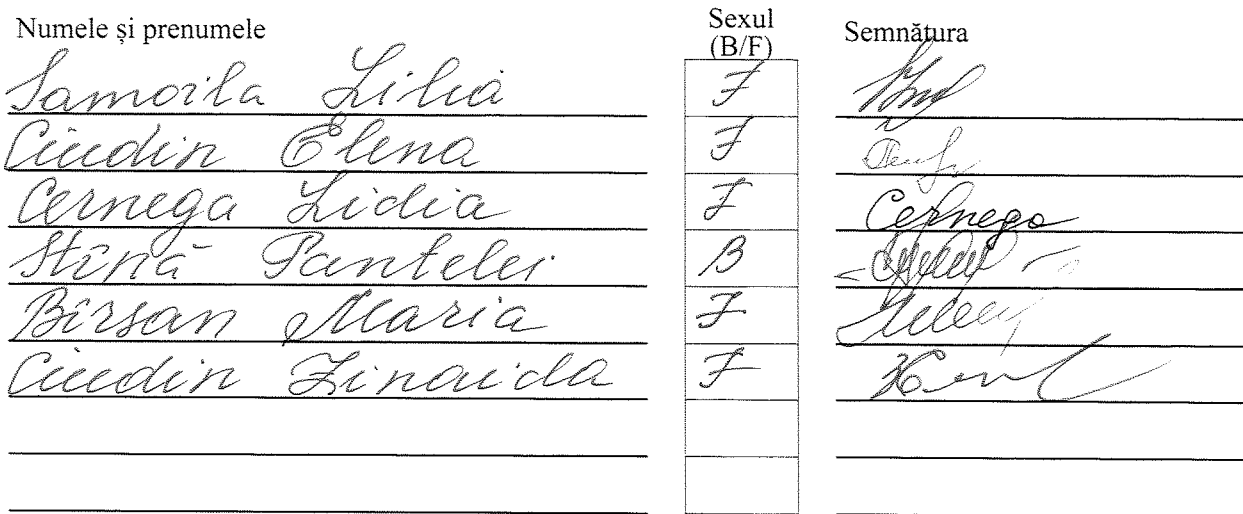 Numele și prenumele Sexul (B/F) Semnătura
Samoila Lilia F
Ciudin Elena F
Cernega Lidia F Cernega
Stînă Pantelei B
Bîrsan Maria F
Ciudin Zinaida F